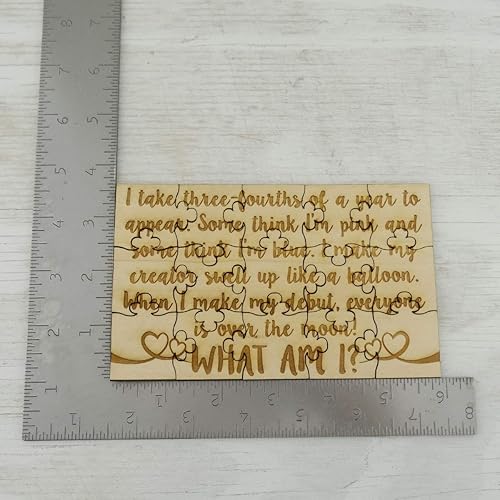 I take three-fourths of a year to
appear. Some think I'm pink and
some think I'm blue. I make my
creator swell up like a balloon.
When I make my debut, everyone
is over the moon!
WHAT AM I?
8
7
6
5
4
3
2
1
5
4
3
2
1
1
2
3
4
5
6
7
8
1
2
3
4
5
6